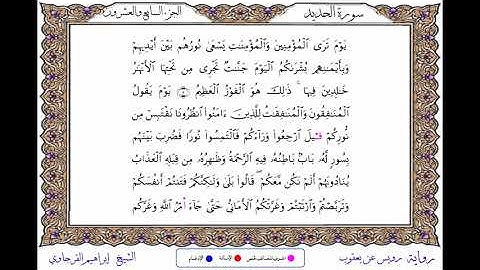 سورة الحديد
الجزء السابع والعشرون
يَوْمَ تَرَى الْمُؤْمِنِينَ وَالْمُؤْمِنَٰتِ يَسْعَىٰ نُورُهُم بَيْنَ أَيْدِيهِمْ
وَبِأَيْمَٰنِهِم بُشْرَىٰكُمُ الْيَوْمَ جَنَّٰتٌ تَجْرِى مِن تَحْتِهَا الْأَنْهَٰرُ
خَٰلِدِينَ فِيهَا ۚ ذَٰلِكَ هُوَ الْفَوْزُ الْعَظِيمُ يَوْمَ يَقُولُ
الْمُنَٰفِقُونَ وَالْمُنَٰفِقَٰتُ لِلَّذِينَ ءَامَنُوا انظُرُونَا نَقْتَبِسْ مِن
نُّورِكُمْ قِيلَ ارْجِعُوا وَرَآءَكُمْ فَالْتَمِسُوا نُورًا فَضُرِبَ بَيْنَهُم
بِسُورٍ لَّهُ بَابٌ بَاطِنُهُ فِيهِ الرَّحْمَةُ وَظَٰهِرُهُ مِن قِبَلِهِ الْعَذَابُ
يُنَادُونَهُمْ أَلَمْ نَكُن مَّعَكُمْ ۖ قَالُوا بَلَىٰ وَلَٰكِنَّكُمْ فَتَنتُمْ أَنفُسَكُمْ
وَتَرَبَّصْتُمْ وَارْتَبْتُمْ وَغَرَّتْكُمُ الْأَمَانِىُّ حَتَّىٰ جَآءَ أَمْرُ اللَّهِ وَغَرَّكُم
رواية رويس عن يعقوب
الإمالة
الإدغام
الشيخ إبراهيم الفرجاوي